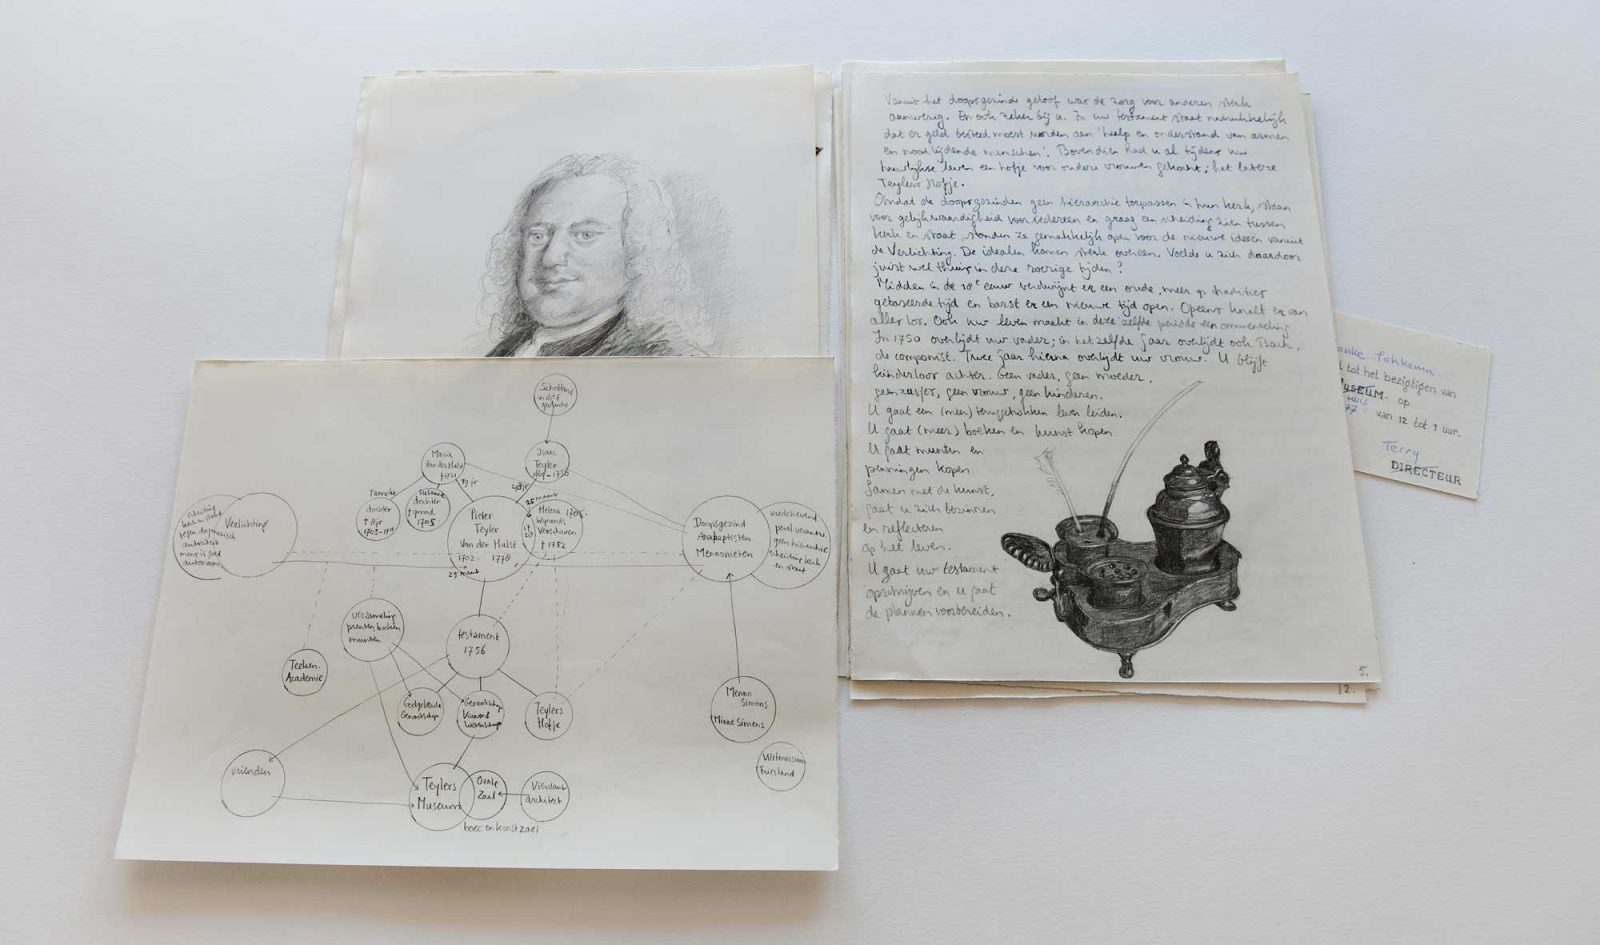 Schotland
in 16e E
Maria
van der Hulst
† 1721
Isaac
Teyler
- 1750
Tanneke
dochter
† 8 jr
1703-1711
Susanna
dochter
† grond.
1705
25 maart
Pieter
Teyler
Van der Hulst
1702 - 1778
25 maart
Helena
Wijnands
Verschaaren
† 1752
Verlichting
kerk en staat
tegen dogmatisch
autoriteit
mens is goed
autonoom
Doopsgezind
Anabaptisten
Mennonieten
geen hierarchie
scheiding kerk
en staat
verzameling
prenten, boeken
munten
testament
1756
Teeken.
Academie
Godgeleerde
Genootschap
Genootschap
Teylers
Hofje
Menno
Simons
Minne Simens
Witmarsum
Friesland
vrienden
Teylers
Museum
Ovale
Zaal
Viervant
architect
boec en konst zael
Vanuit het doopsgezinde geloof was de zorg voor anderen sterk
aanwezig. En ook zeker bij u. In uw testament staat nadrukkelijk
dat er geld besteed moest worden aan 'hulp en onderstand van armen
en noodlijdende menschen'. Bovendien had u al tijdens uw
leven een hofje voor oudere vrouwen gekocht; het latere
Teylers Hofje.
Omdat de doopsgezinden geen hierarchie toepassen in hun kerk, staan
voor gelijkwaardigheid voor iedereen en graag een scheiding zien tussen
kerk en staat, stonden ze gemakkelijk open voor de nieuwe ideeën vanuit
de Verlichting. De idealen komen sterk overeen. Voelde u zich daardoor
juist wel thuis in deze roerige tijden?
Midden in de 18e eeuw verdwijnt er een oude, meer op tradities
gebaseerde tijd en barst er een nieuwe tijd open. Opeens knalt er van
alles los. Ook uw leven maakt in deze zelfde periode een omwenteling.
In 1750 overlijdt uw vader; in hetzelfde jaar overlijdt ook Bach,
de componist. Twee jaar hierna overlijdt uw vrouw. U blijft
kinderloos achter. Geen vader, geen moeder,
geen zusjes, geen vrouw, geen kinderen.
U gaat een (meer) teruggetrokken leven leiden.
U gaat (meer) boeken en kunst kopen
U gaat munten en
penningen kopen.
Samen met de kunst,
gaat u zich bezinnen
en reflecteren
op het leven.
U gaat uw testament
opschrijven en u gaat
de plannen voorbereiden.
5.
12.
anke Fokkema
tot het bezigtigen van
MUSEUM op
HUIS
van 12 tot 1 uur.
Terry
DIRECTEUR